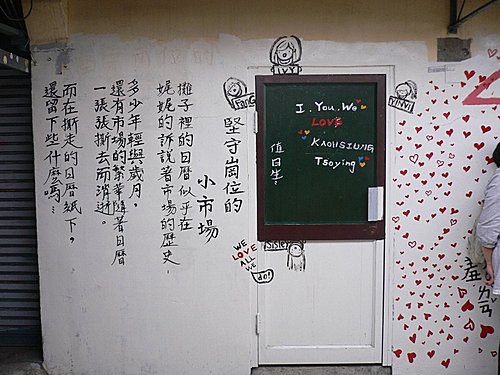 堅守崗位的
小市場
攤子裡的日曆似乎在
娓娓的訴說著市場的歷史，
多少年輕與歲月，
還有市場的繁華隨著日曆
一張張撕去而消逝。
而在撕走的日曆紙下，
還留下些什麼嗎…
IVY
FANG
YINYI
I. You. We
LOVE
KAOHSIUNG
Tsoying
值日生:
WE
LOVE
ALL
WE
do!